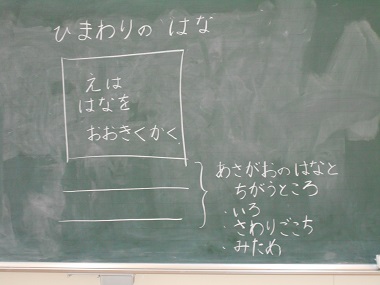 ひまわりの はな
えは
はなを
おおきくかく.
あさがおのはなと
ちがうところ
・いろ
・さわりごこち
・みため